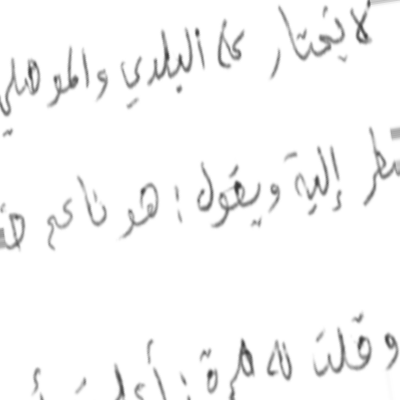 لا يختار على البلدي والموصلي
ينظر إلية ويقول : هو ناعم
وقلت له مرة :